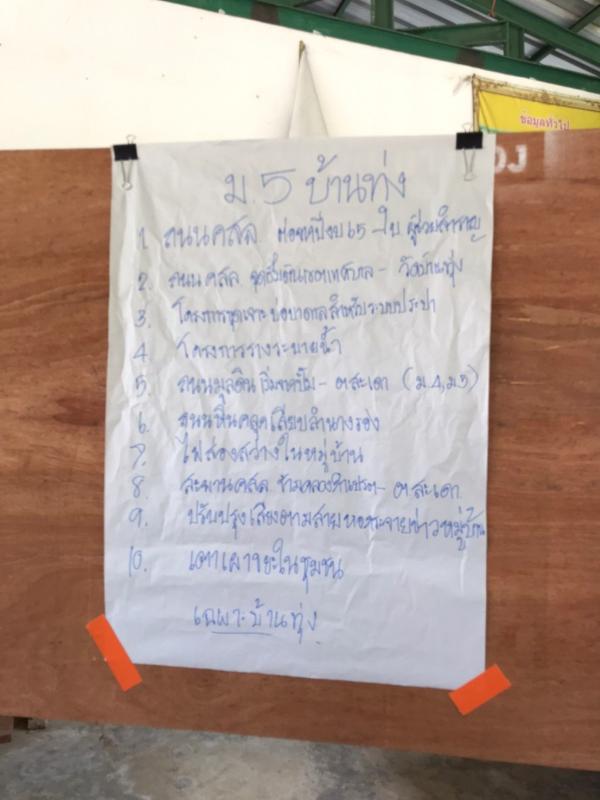 ข้อมูลทั่วไป
ม.5 บ้านทุ่ง
1. ถนนคสล. ต่อจากปีงบ 65 -
2. ถนนคสล. จุดสิ้นสุดเขตเทศบาล - วัดบ้านทุ่ง
3. โครงการขุดเจาะบ่อบาดาลสำหรับระบบประปา
4. โครงการรางระบายน้ำ
5. ถนนมูลดิน - ต.สะเดา (ม.4, ม.5)
6. ถนนหินคลุกเลียบลำนางรอง
7. ไฟส่องสว่างในหมู่บ้าน
8. สะพานคสล. ข้ามคลอง - ต.สะเดา
9. ปรับปรุงเสียงตามสายหอกระจายข่าวหมู่บ้าน
10. เตาเผาขยะในชุมชน
เฉพาะบ้านทุ่ง